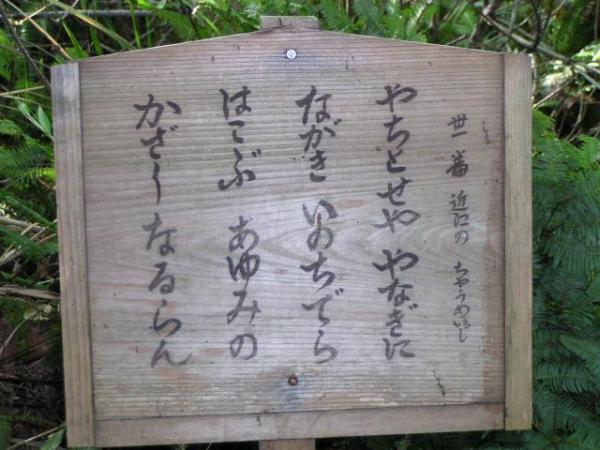 丗一番 近江の ちやうめいじ
やちとせや やなぎに
ながき いのちでら
はこぶ あゆみの
かざしなるらん